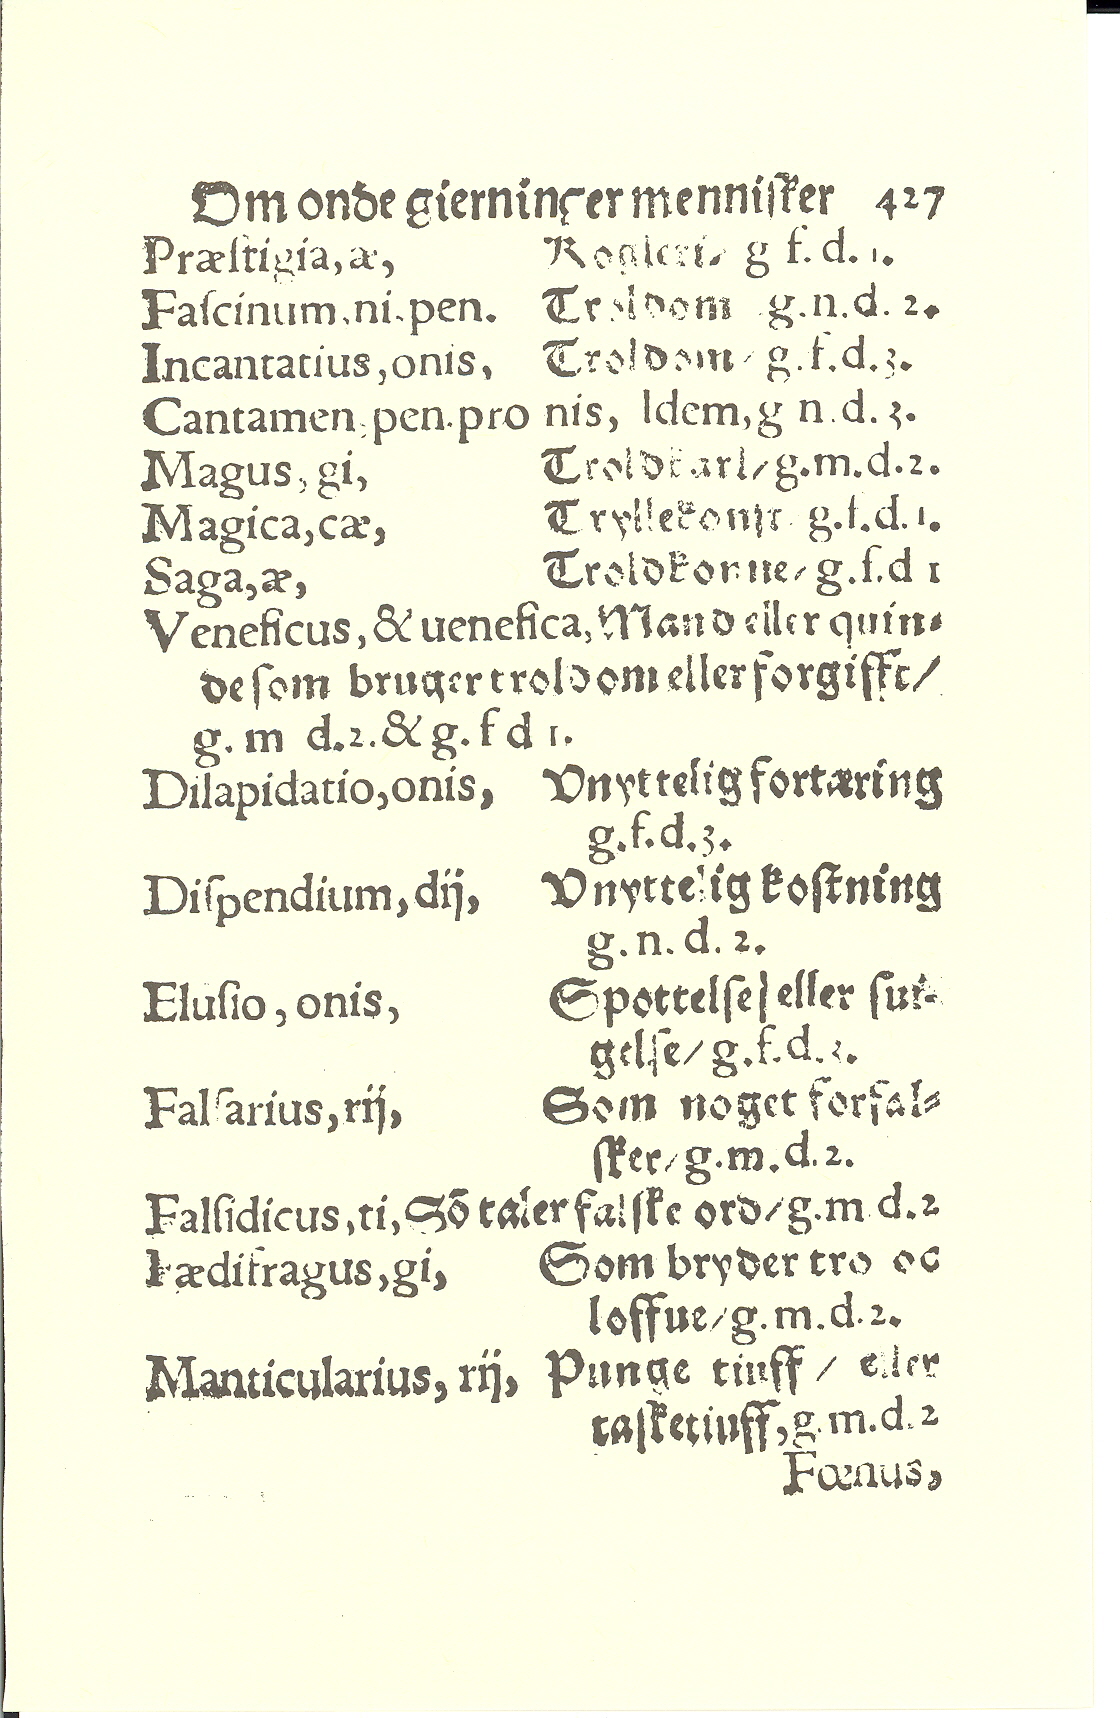 Om onde gierninger mennisker 427
Præſtigia, æ, Kogleri/ g f. d. 1.
Faſcinum, ni. pen. Troldom g. n. d. 2.
Incantatius, onis, Troldom/ g. f. d. 3.
Cantamen, pen. pro nis, Idem, g n. d. 3.
Magus, gi, Troldkarl/ g. m. d. 2.
Magica, cæ, Tryllekonſt g. f. d. 1.
Saga, æ, Troldkonne/ g. f. d 1
Veneficus, & uenefica, Mand eller quin⸗
de ſom bruger troldom eller forgifft/
g. m d. 2. & g. f d 1.
Dilapidatio, onis, Vnyttelig fortæring
g. f. d. 3.
Diſpendium, dij, Vnyttelig koſtning
g. n. d. 2.
Eluſio, onis, Spottelſe/ eller
gelſe/ g. f. d. 3.
Falſarius, rij, Som noget forfal⸗
ſker/ g. m. d. 2.
Falſidicus, ti, Sō taler falſke ord/ g. m d. 2
Fædifragus, gi, Som bryder tro oc
loffue/ g. m. d. 2.
Manticularius, rij, Punge tiuff / eller
taſketiuff, g. m. d. 2
Fœnus,